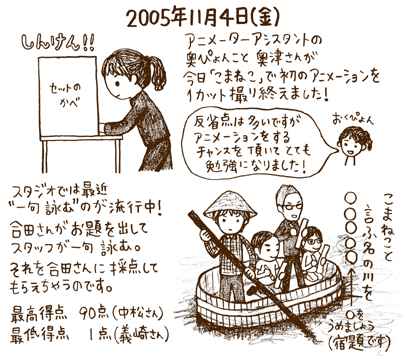 2005年11月4日(金)
しんけん!!
セットの
かべ
アニメーターアシスタントの
奥ぴょんこと 奥津さんが
今日「こまねこ」で初のアニメーションを
1カット撮り終えました!
反省点は多いですが
アニメーションをする
チャンスを 頂いて とても
勉強になりました!
おくぴょん
スタジオでは最近
"一句 詠む"のが流行中!
合田さんがお題を出して
スタッフが一句 詠む。
それを合田さんに採点して
もらえちゃうのです。
最高得点 90点(中松さん)
最低得点 1点(義崎さん)
こまねこと
言ふ名の川を
〇〇〇〇〇
↑〇を
うめましょう
(宿題です)